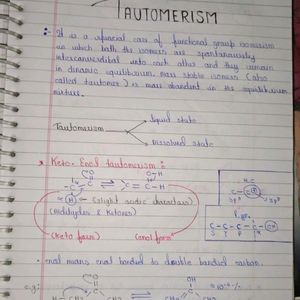 TAUTOMERISM
:- It is a special case of functional group isomerism
in which both the isomers are spontaneously
interconvertible into each other and they remain
in dynamic equilibrium. more stable isomers (also
called tautomer) is more abundant in the equilibrium
mixture.
Tautomerism
liquid state
dissolved state
* Keto-Enol tautomerism :-
(slight acidic character)
(Aldehydes & Ketones)
(Keto form) (enol form)
• enol means enol bonded to double bonded carbon.
e.g: